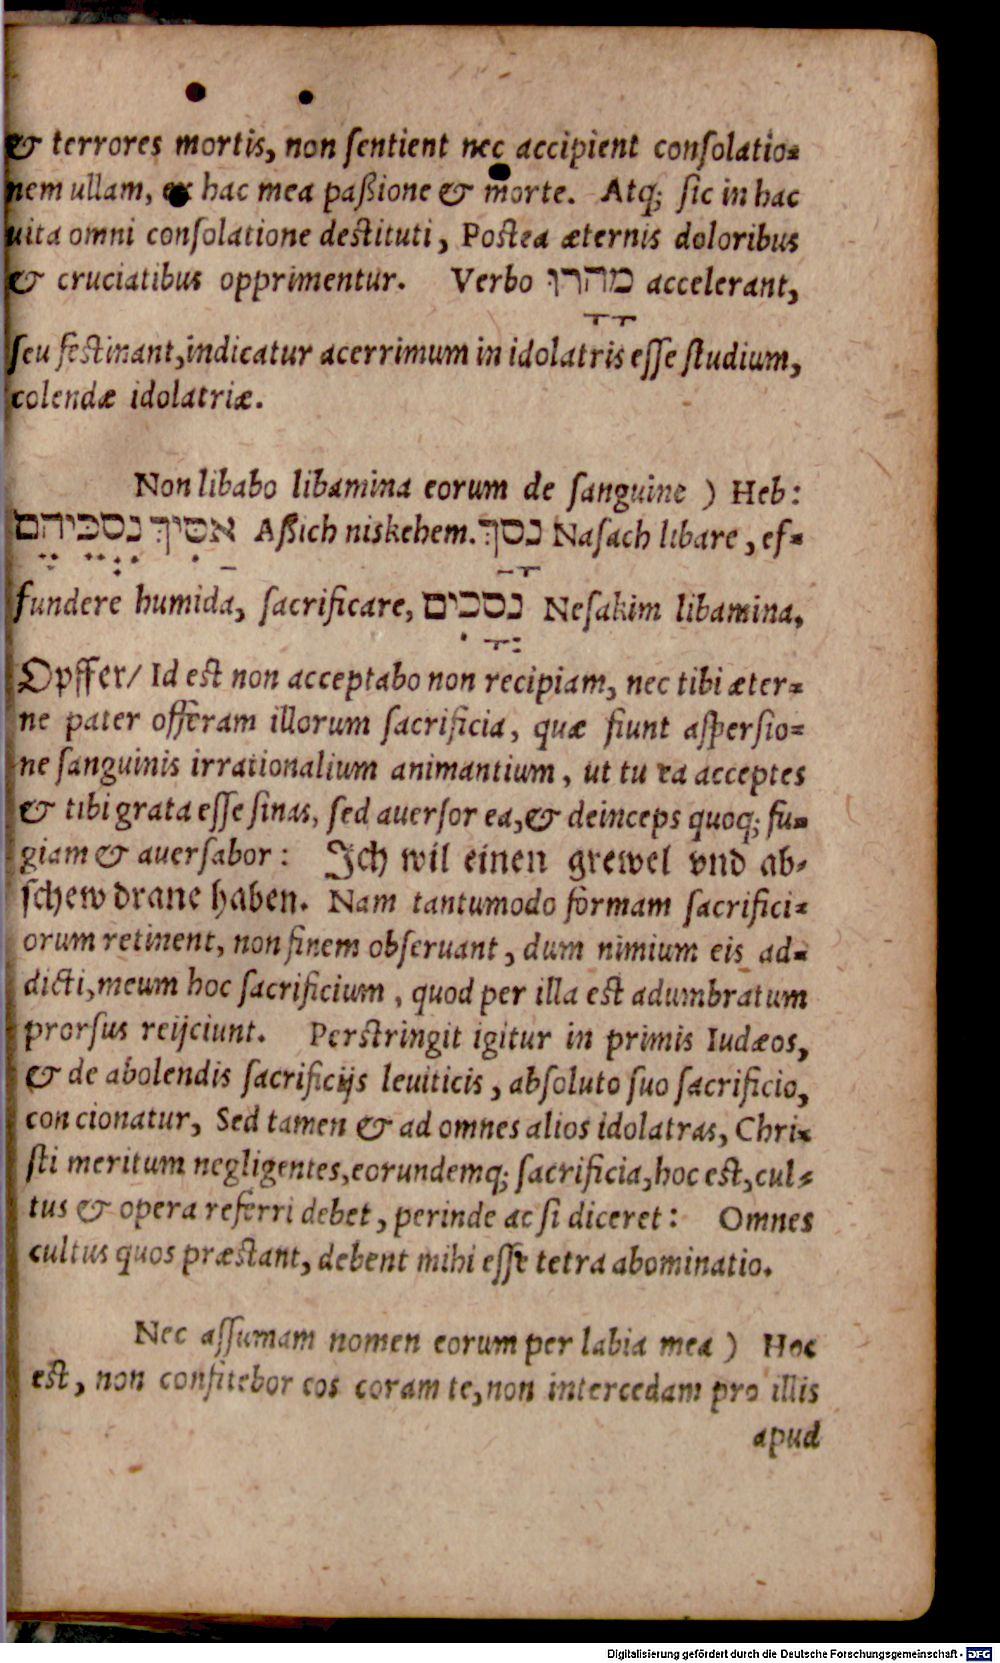 & terrores mortis, non ſentient nec accipient conſolatio⸗
nem ullam, ex hac mea paßione & morte. Atq; ſic in hac
uita omni conſolatione deſtituti, Poſtea æternis doloribus
& cruciatibus opprimentur. Verbo מָהָרוּ accelerant,
ſeu feſtinant, indicatur acerrimum in idolatris eſſe ſtudium,
colendæ idolatriæ.
Non libabo libamina eorum de ſanguine ) Heb:
אַסִּיךְ נִסְכֵּיהֶם Aßich niskehem. נָסַךְ Naſach libare, ef⸗
fundere humida, ſacrificare, נְסָכִים Neſakim libamina,
Opffer/ Id eſt non acceptabo non recipiam, nec tibi æter⸗
ne pater offeram illorum ſacrificia, quæ fiunt aſperſio⸗
ne ſanguinis irrationalium animantium, ut tu ea acceptes
& tibi grata eſſe ſinas, ſed auerſor ea, & deinceps quoq; fu⸗
giam & auerſabor: Ich wil einen grewel vnd ab⸗
ſchew drane haben. Nam tantumodo formam ſacrifici⸗
orum retinent, non finem obſeruant, dum nimium eis ad⸗
dicti, meum hoc ſacrificium, quod per illa eſt adumbratum
prorſus reijciunt. Perſtringit igitur in primis Iudæos,
& de abolendis ſacrificijs leuiticis, abſoluto ſuo ſacrificio,
concionatur, Sed tamen & ad omnes alios idolatras, Chri⸗
ſti meritum negligentes, eorundemq; ſacrificia, hoc eſt, cul⸗
tus & opera referri debet, perinde ac ſi diceret: Omnes
cultus quos præſtant, debent mihi eſſe tetra abominatio.
Nec aſſumam nomen eorum per labia mea ) Hoc
eſt, non confitebor eos coram te, non intercedam pro illis
apud
Digitalisierung gefördert durch die Deutsche Forschungsgemeinschaft - DFG